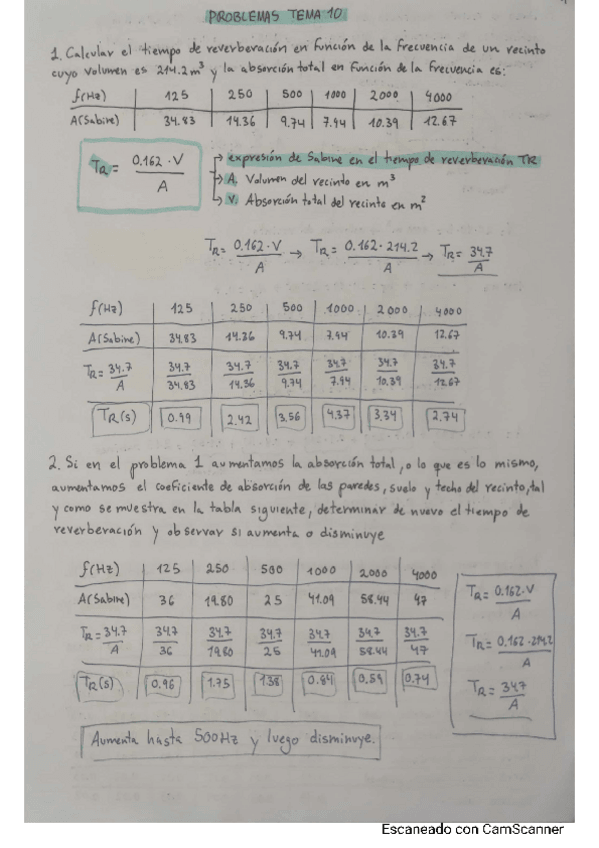 PROBLEMAS TEMA 10
1. Calcular el tiempo de reverberación en función de la frecuencia de un recinto
cuyo volumen es 214.2 m³ y la absorción total en función de la frecuencia es:
f(Hz) 125 250 500 1000 2000 4000
A(Sabine) 34.83 14.36 9.74 7.94 10.39 12.67
TR = 0.162 · V / A
→ expresión de Sabine en el tiempo de reverberación TR
→ A. Volumen del recinto en m³
→ V. Absorción total del recinto en m²
TR = 0.162 · V / A → TR = 0.162 · 214.2 / A → TR = 34.7 / A
f(Hz) 125 250 500 1000 2000 4000
A(Sabine) 34.83 14.36 9.74 7.94 10.39 12.67
TR = 34.7 / A 34.7 / 34.83 34.7 / 14.36 34.7 / 9.74 34.7 / 7.94 34.7 / 10.39 34.7 / 12.67
TR(s) 0.99 2.42 3.56 4.37 3.34 2.74
2. Si en el problema 1 aumentamos la absorción total, o lo que es lo mismo,
aumentamos el coeficiente de absorción de las paredes, suelo y techo del recinto, tal
y como se muestra en la tabla siguiente, determinar de nuevo el tiempo de
reverberación y observar si aumenta o disminuye
f(Hz) 125 250 500 1000 2000 4000
A(Sabine) 36 19.80 25 41.09 58.44 47
TR = 34.7 / A 34.7 / 36 34.7 / 19.80 34.7 / 25 34.7 / 41.09 34.7 / 58.44 34.7 / 47
TR(s) 0.96 1.75 1.38 0.84 0.59 0.74
TR = 0.162 · V / A
TR = 0.162 · 214.2 / A
TR = 34.7 / A
Aumenta hasta 500Hz y luego disminuye.
Escaneado con CamScanner